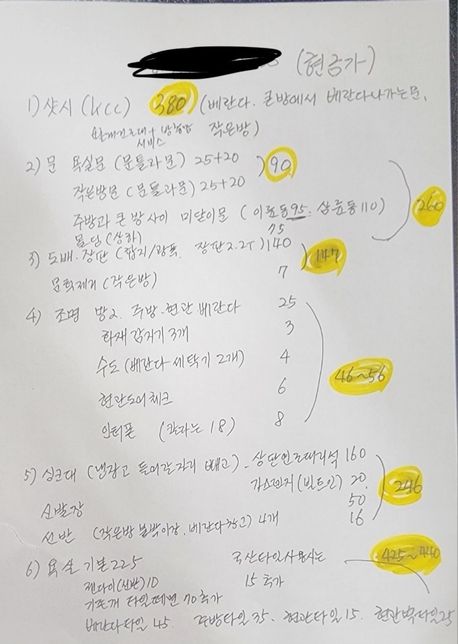 (현금가)
1) 샷시 (kcc) 380 (베란다. 큰방에서 베란다나가는문,
서비스 작은방)
2) 문 욕실문 (문틀라문) 25+20 ) 90
작은방문 (문틀라문) 25+20
주방과 큰방사이 미닫이문 (이중동95. 삼중동110) 260
(상하) 75
3) 도배.장판 (합지/광폭. 장판2.2T) 140 147
문턱제거 (작은방) 7
4) 조명 방2. 주방.현관 베란다 25
화재감지기 3개 3
수도 (베란다 세탁기 2개) 4 46~56
현관도어체크 6
인터폰 (칼라는 18) 8
5) 싱크대 (냉장고 들어갈자리 빼고). 상단인조대리석 160
가스렌지 (빌트인) 20 246
신발장 50
선반 (작은방 붙박이장. 베란다창고) 4개 16
6) 욕실 기본 225 국산타일사용시는 425~440
젠다이(선반) 10 15 추가
기존개 타일떼면 70추가
베란다타일 45. 주방타일 35. 현관타일 15. 현관벽타일 25